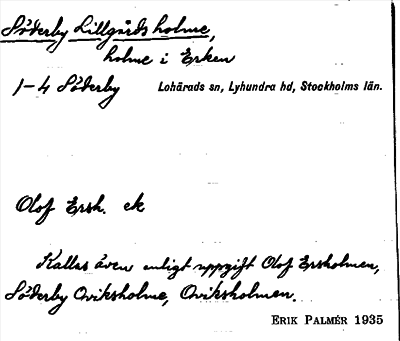 Söderby Lillgårdsholme,
holme i Erken
1-4 Söderby Lohärads sn, Lyhundra hd, Stockholms län.
Olof Ersh. ek
Kallas även enligt uppgift Olof Ersholmen,
Söderby Qviksholme, Qviksholmen.
ERIK PALMÉR 1935